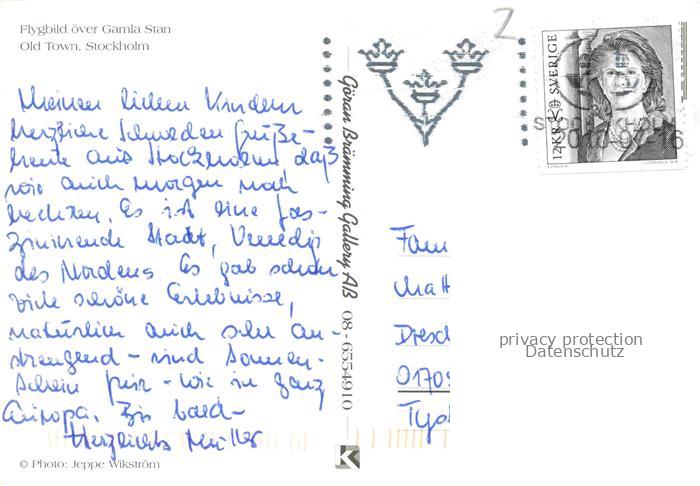 Flygbild över Gamla Stan
Old Town, Stockholm
Meinen lieben Kindern
herzliche Schweden grüße -
heute aus Stockholm, daß
wir auch morgen noch
Es ist eine fas-
zinierende Stadt, Venedig
des Nordens Es gab schon
viele schöne Erlebnisse,
natürlich auch sehr an-
strengend - und Sonnen-
schein pur - wie in ganz
Europa. Bis bald -
Herzlichst
© Photo: Jeppe Wikström
Göran Brämming Gallery AB 08-6554910
2
12 KR SVERIGE
2010-07-16
Fam
Matt
Dresd
0170
Tys
privacy protection
Datenschutz